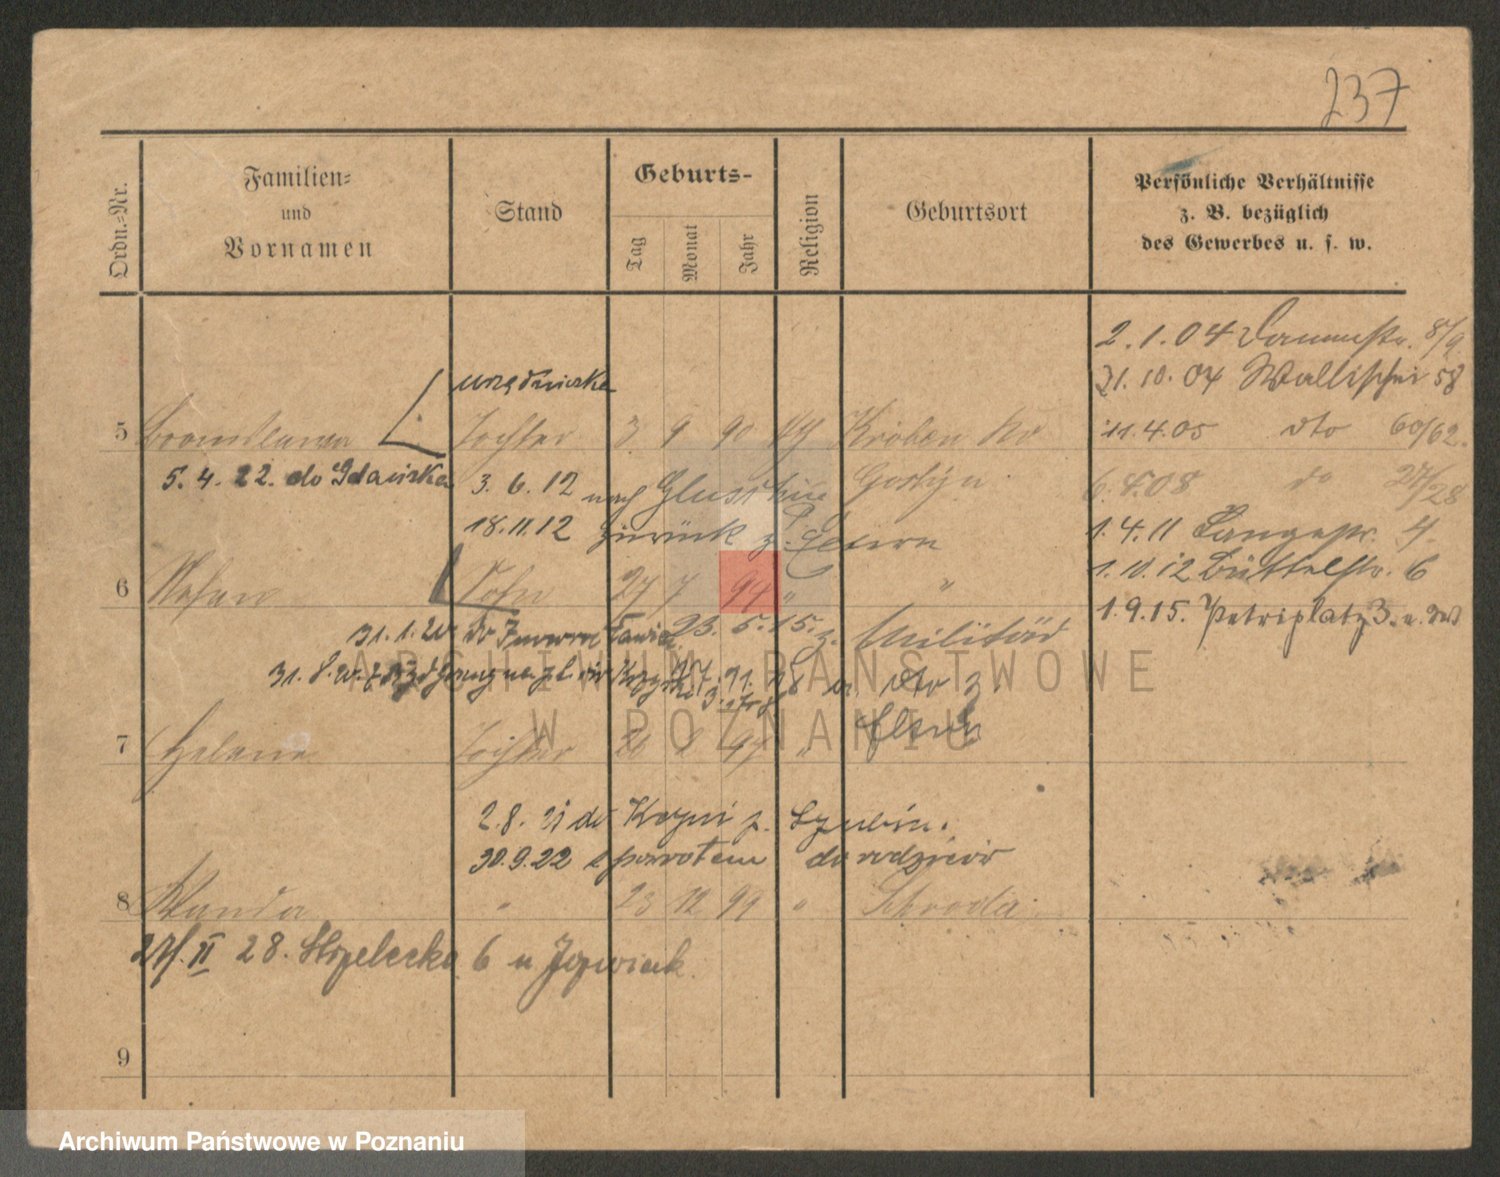 237
Ordn.-Nr.
Familien-
und
Vornamen
Stand
Geburts-
Tag
Monat
Jahr
Religion
Geburtsort
Persönliche Verhältnisse
z. B. bezüglich
des Gewerbes u. s. w.
2.1.04 Dammstr. 8/9
21.10.04 Wallischei 58
urzędniczka
5 Bronislawa Tochter 3 9 90 Kröben
11.4.05 dto 60/62.
5.4.22. do Gdańska
3.6.12 nach
Gostyn
6.4.08 do 27/28
18.11.12 zurück z. d. Eltern
1.4.11 Langestr. 4.
6 Stefan Sohn 27 7 94 " "
1.10.12 Büttelstr. 6
1.9.15. Petriplatz 3.
23.5.15. z. Militär
31.1.20 do
ARCHIWUM PAŃSTWOWE
W POZNANIU
dto z.
Eltern
7 Helene Tochter 97 "
2.8.21 do Kcyni p. Szubin.
30.9.22 z powrotem do rodziców
8 Wanda " 23 12 99 " Schroda
27. II 28. Strzelecka 6 u Jozwiak.
9
Archiwum Państwowe w Poznaniu